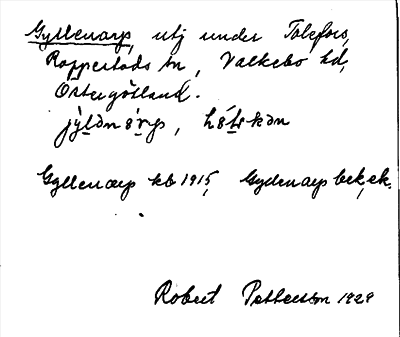 Gyllenarp, utj under Tolefors,
Rappestads sn, Valkebo hd,
Östergötland.
Gyllenarp kb 1915, Gydenarp bek, ek.
Robert Pettersson 1929